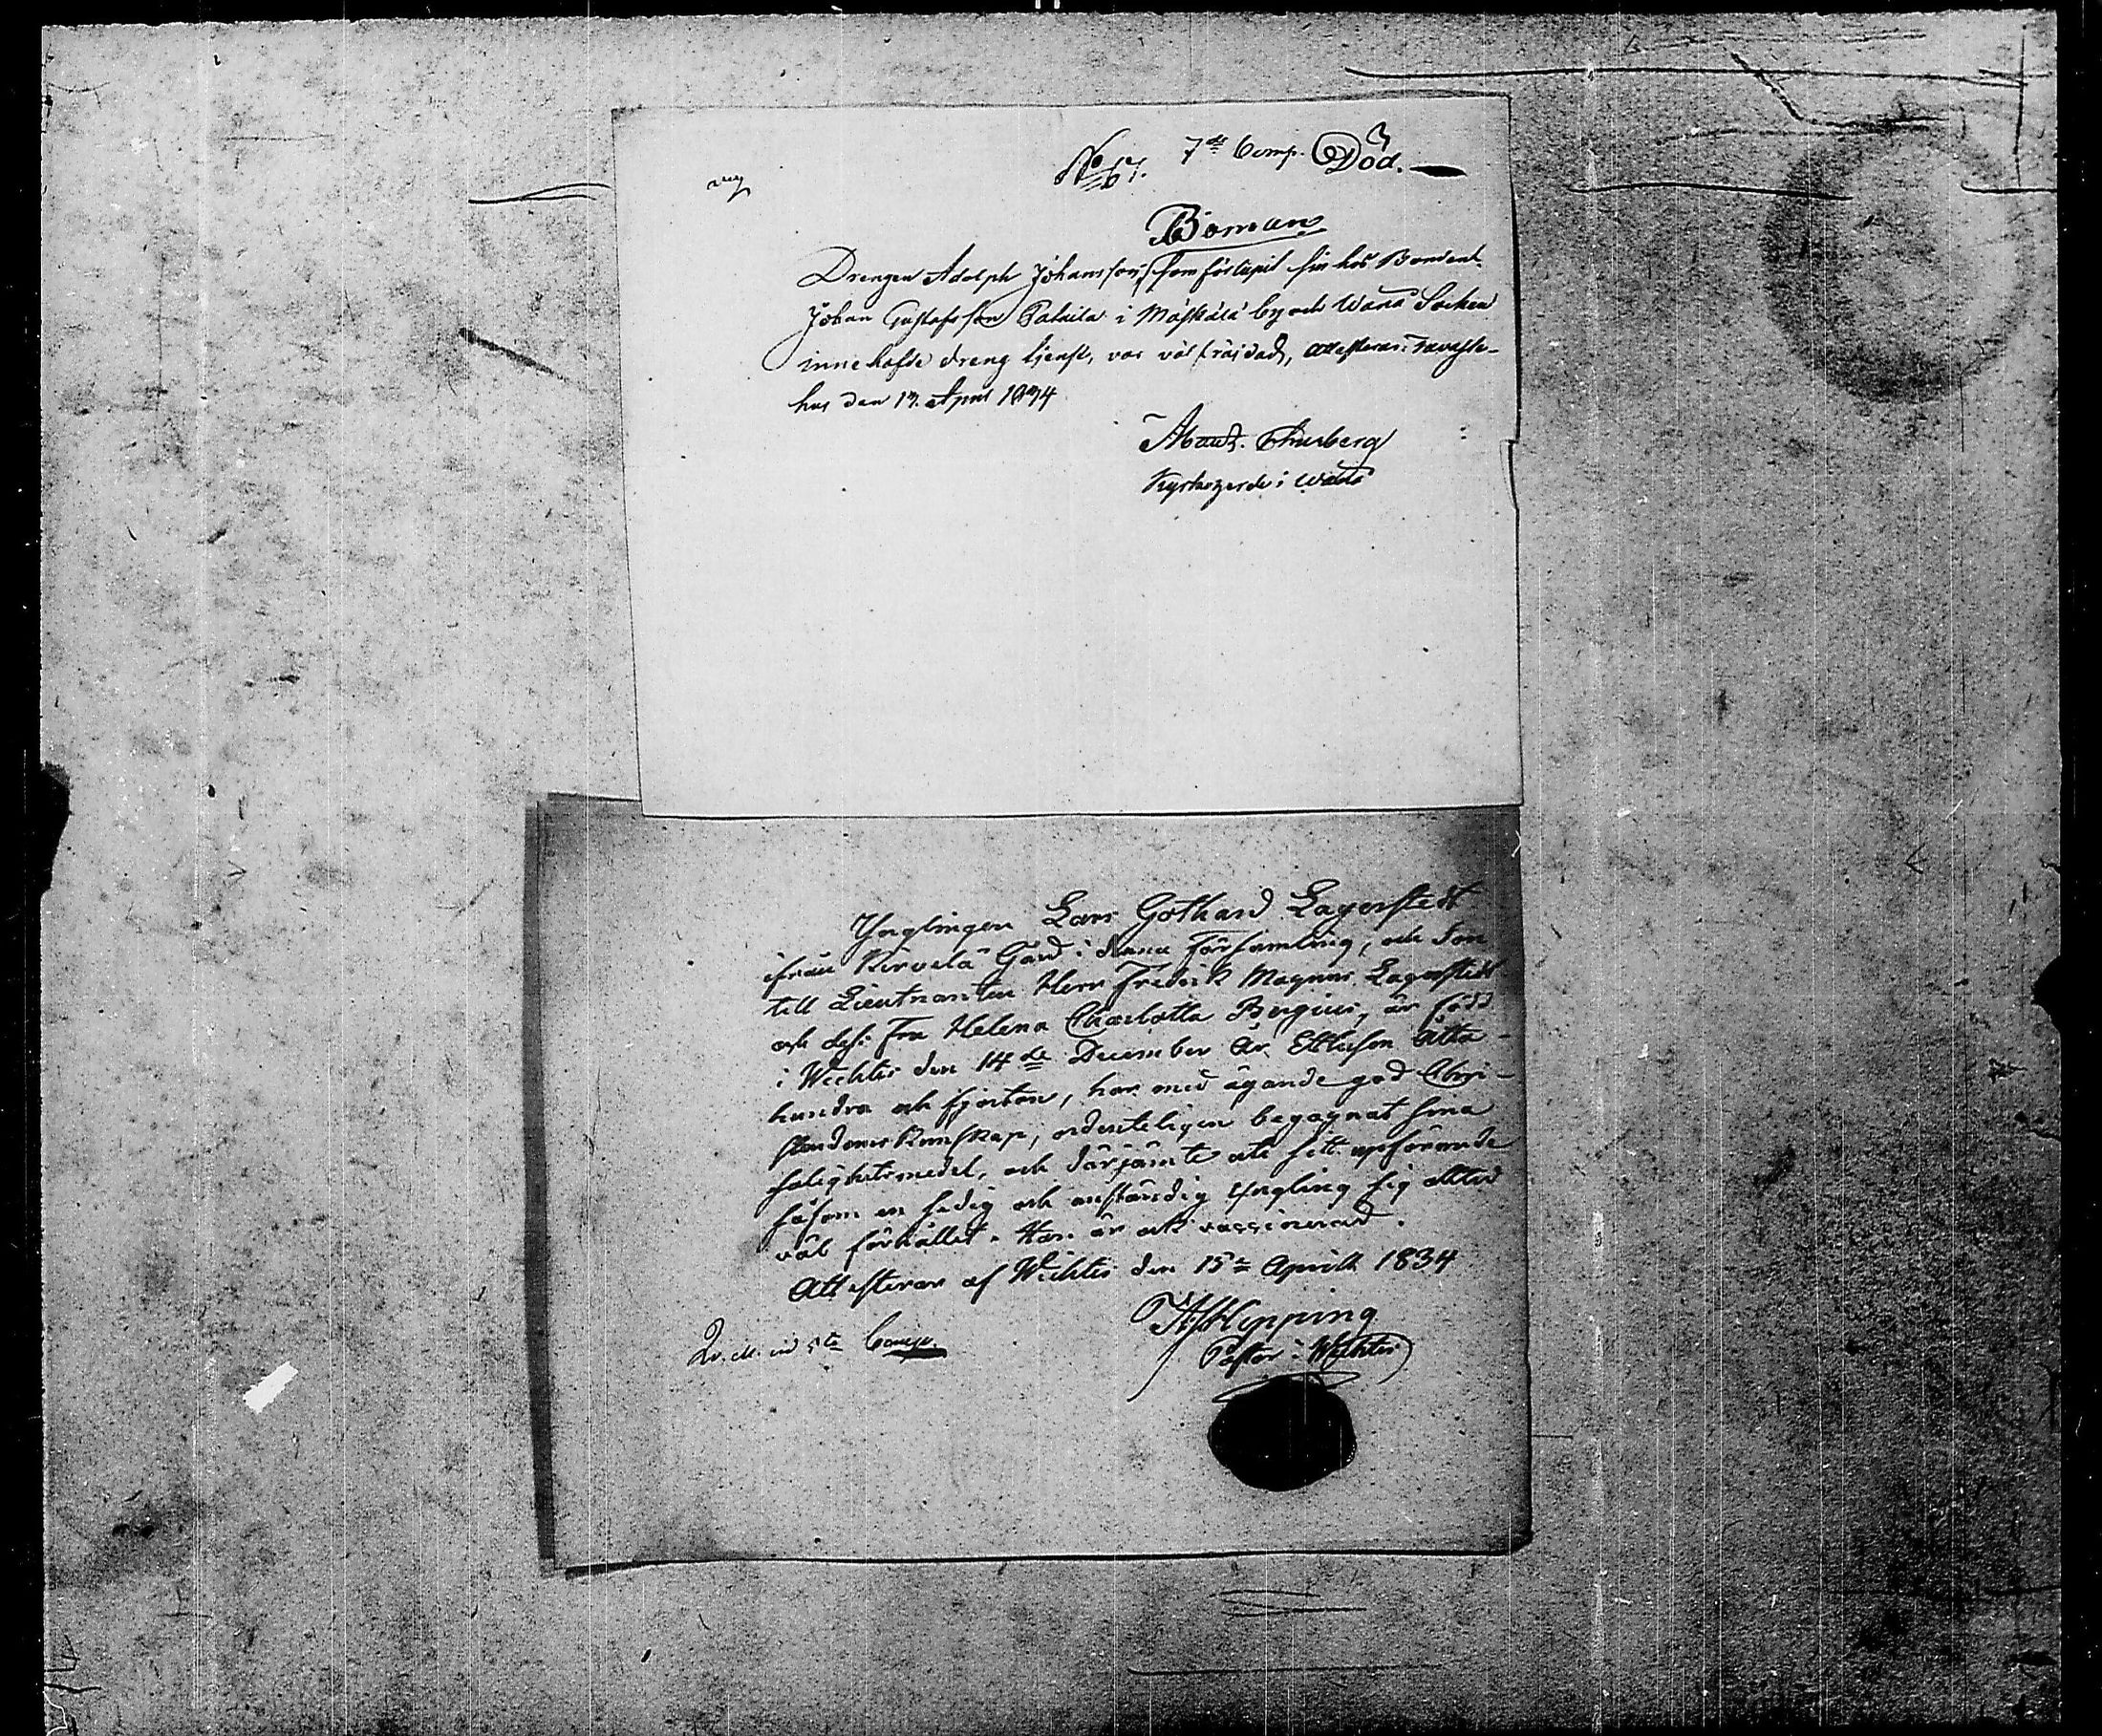 No 67. 7de Comp. Död.
Boman
Drengen Adolph Johansson, som förlupit sin hos Bonden
Johan Gustafsson Palaila i Maskala by och Wånå Socken
innehafde dreng tjenst, var väl fräjdad, attesterar. Tavaste-
hus den 13. April 1834
Kyrkoherde i Wånå
Ynglingen Lars Gothard Lagerstedt
ifrån Kirvelä Gård i denna Församling, och Son
till Lieutnanten Herr Fredrik Magnus Lagerstedt
och dess Fru Helena Charlotta Bergius, är född
i Wichtis den 14de December År Ettusen Åtta-
hundra och fjorton, har med ägande god Chri-
stendoms Kunskap, ordenteligen begagnat sina
salighetsmedel, och därjämte uti sitt upförande
såsom en sedig och anständig Yngling sig alltid
väl förhållit. Han är ock vaccinerad.
Attesterar af Wichtis den 15de Aprill 1834
Hipping
Pastor i Wichtis
vid 5te Comp.